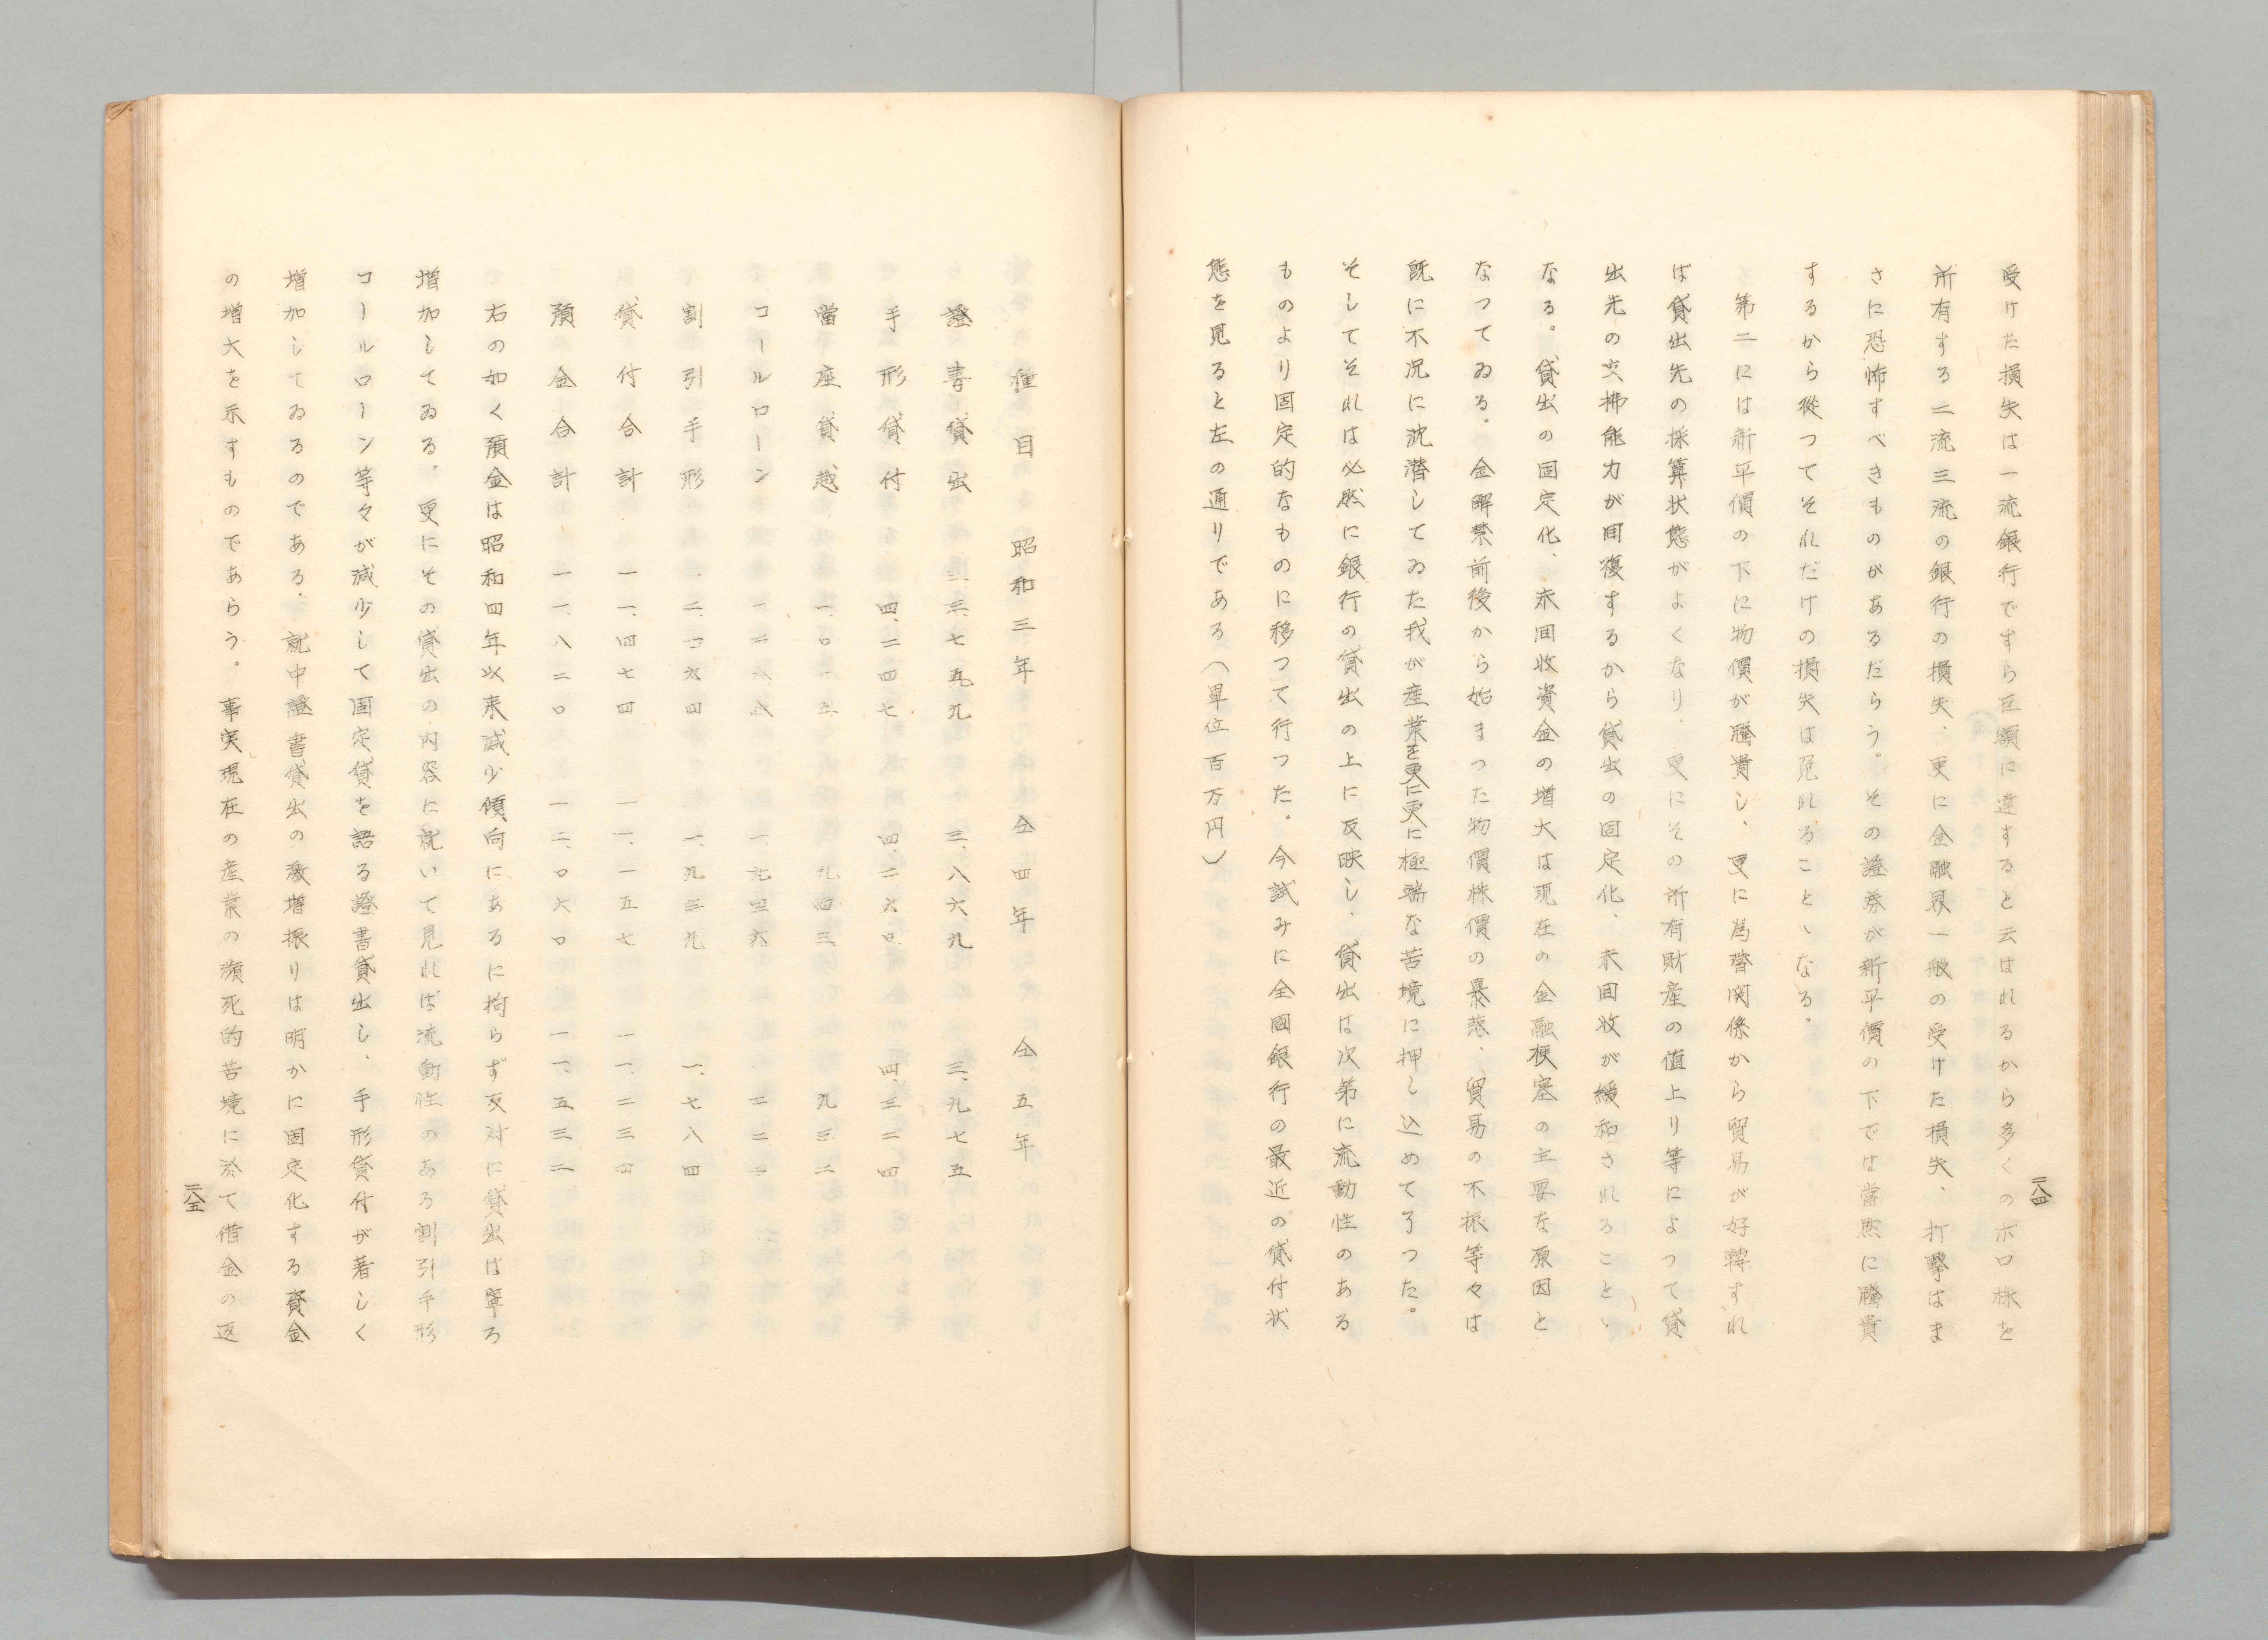 受けた損失は一流銀行ですら巨額に達すると云はれるから多くのボロ株を
所有する二流三流の銀行の損失、更に金融界一般の受けた損失、打撃はま
さに恐怖すべきものがあるだらう。その證券が新平價の下では當然に騰貴
するから從つてそれだけの損失は免れることゝなる。
第二には新平價の下に物價が騰貴し、更に為替関係から貿易が好轉すれ
ば貸出先の採算状態がよくなり、更にその所有財産の値上り等によつて貸
出先の支拂能力が囬復するから貸出の固定化、未囬收が緩和されることゝ
なる。貸出の固定化、未囬收資金の増大は現在の金融梗塞の主要な原因と
なつてゐる。金解禁前後から始まつた物價株價の暴落、貿易の不振等々は
既に不況に沈潜してゐた我が産業を更に更に極端な苦境に押し込めて了つた。
そしてそれは必然に銀行の貸出の上に反映し、貸出は次第に流動性のある
ものより固定的なものに移つて行つた。今試みに全國銀行の最近の貸付状
態を見ると左の通りである（単位百万円）
二八四
種目 昭和三年 仝四年 仝五年
證書貸出 三、七五九 三、八六九 三、九七五
手形貸付 四、二四七 四、二六〇 四、三二四
當座貸越 一、〇一五 九四三 九三二
コールローン
割引手形 二、一六四 一、九三九 一、七八四
貸付合計 一一、四七四 一一、一五七 一一、二三四
預金合計 一一、八二〇 一二、〇六〇 一一、五三二
右の如く預金は昭和四年以来減少傾向にあるに拘らず反対に貸出は寧ろ
増加してゐる。更にその貸出の内容に就いて見れば流動性のある割引手形
コールローン等々が減少して固定貸を語る證書貸出し、手形貸付が著しく
増加してゐるのである。就中證書貸出の激増振りは明かに固定化する資金
の増大を示すものであらう。事実現在の産業の瀕死的苦境に於て借金の返
二八五